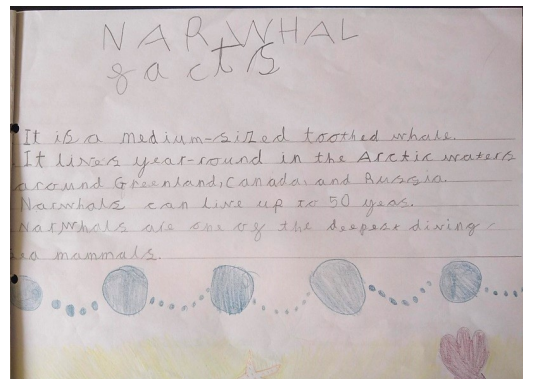 NARWHAL
facts
It is a medium-sized toothed whale.
It lives year-round in the Arctic waters
around Greenland, Canada, and Russia.
Narwhals can live up to 50 yeas.
Narwhals are one of the deepest diving
sea mammals.